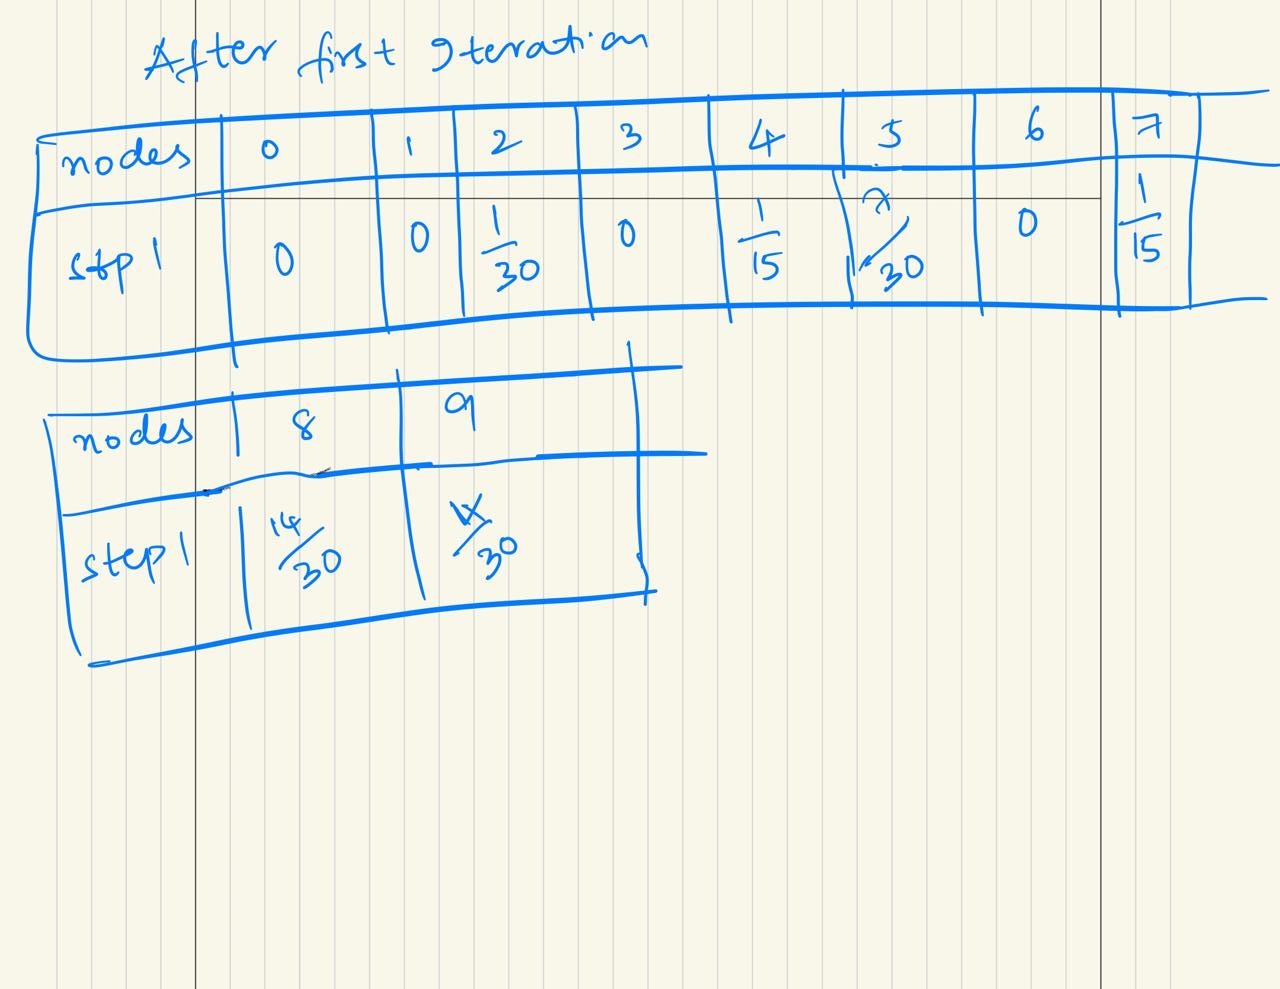 After first Iteration
nodes 0 1 2 3 4 5 6 7
stp 1 0 0 1/30 0 1/15 7/30 0 1/15
nodes 8 9
step 1 14/30 4/30